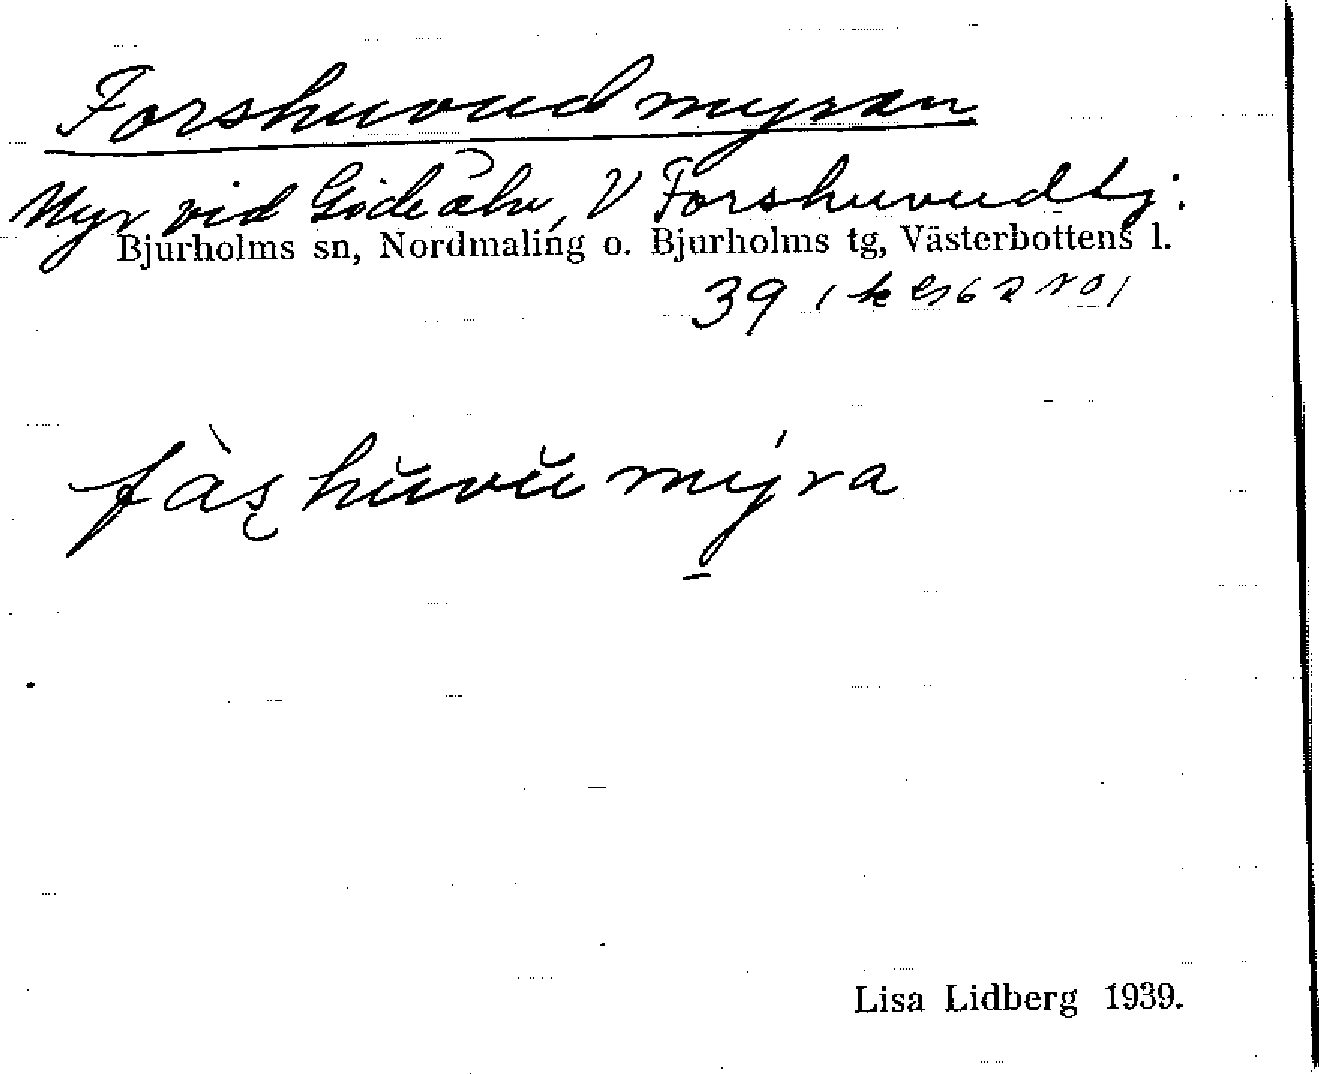 Forshuvudmyran
Myr vid Gideälv, V Forshuvudtj.
Bjurholms sn, Nordmaling o. Bjurholms tg, Västerbottens l.
39
fàs̨ hŭvŭ mýra
Lisa Lidberg 1939.